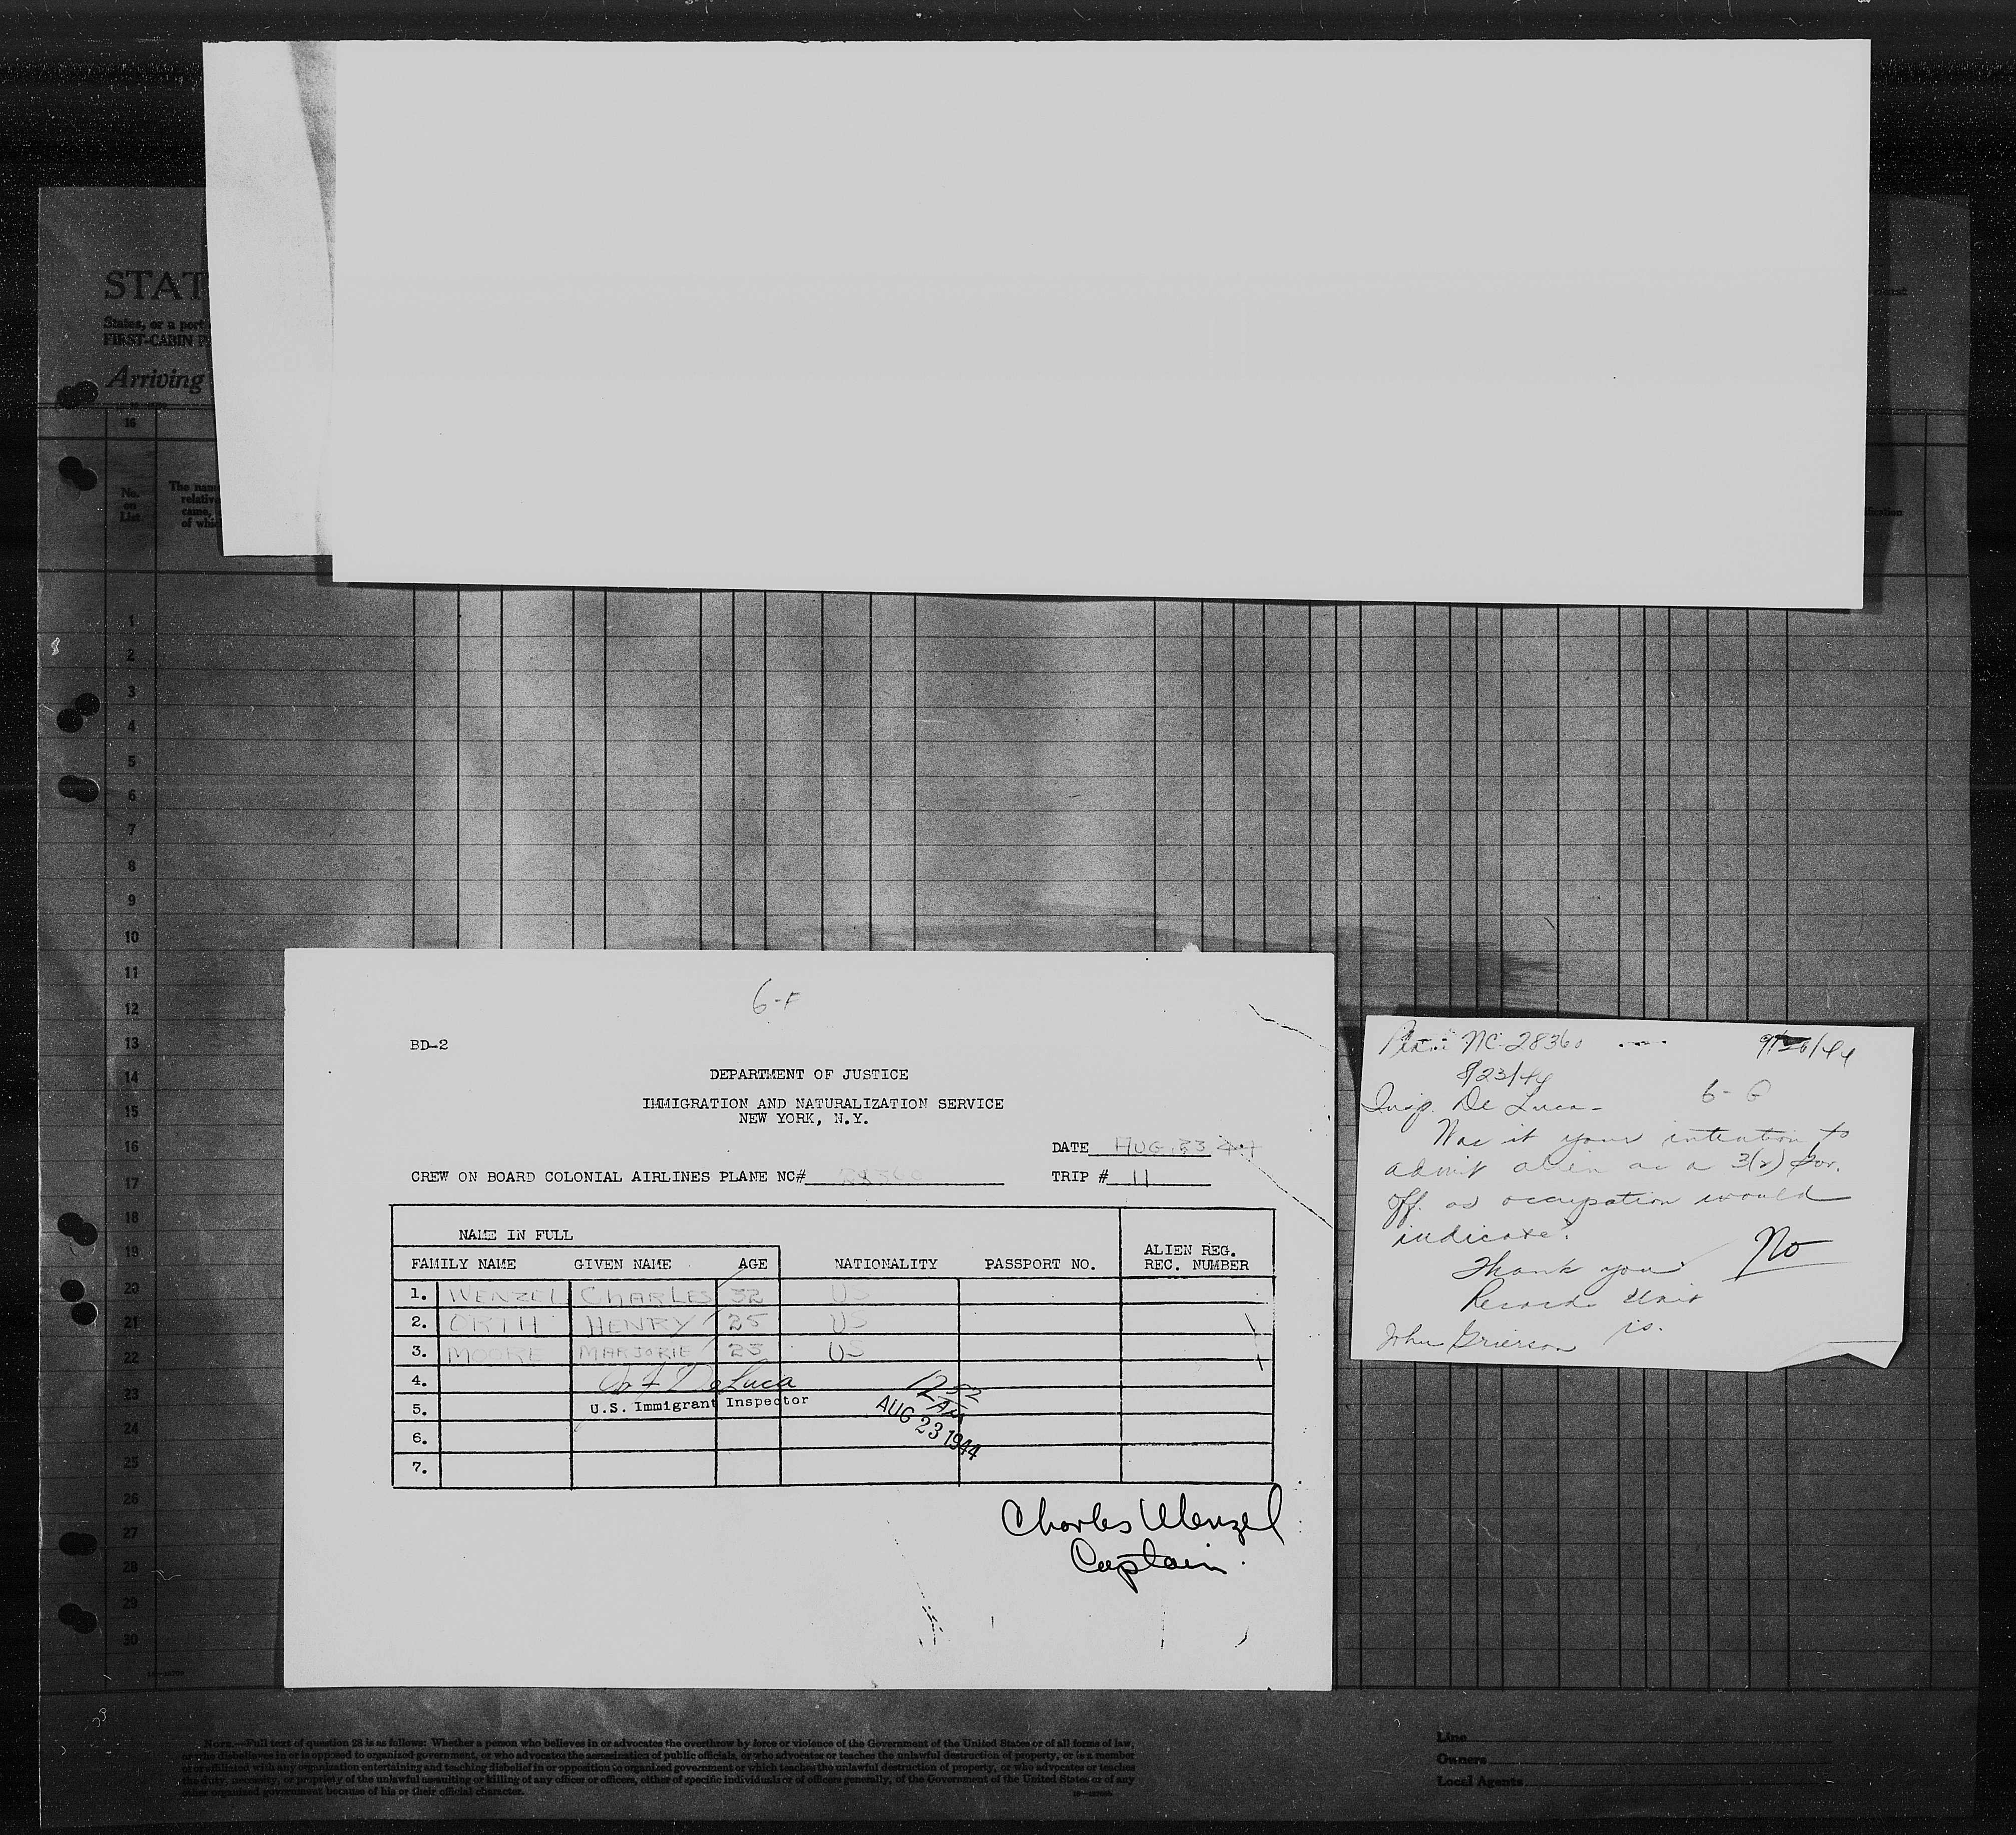 STAT
States, or a port
FIRST-CABIN P
Arriving
16
No. on List
The nam
relativ
came,
of whi
1
2
3
4
5
6
7
8
9
10
11
12
13
14
15
16
17
18
19
20
21
22
23
24
25
26
27
28
29
30
6-F
BD-2
DEPARTMENT OF JUSTICE
IMMIGRATION AND NATURALIZATION SERVICE
NEW YORK, N.Y.
DATE AUG. 23 44
CREW ON BOARD COLONIAL AIRLINES PLANE NC# 28360 TRIP # 11
NAME IN FULL
FAMILY NAME GIVEN NAME AGE NATIONALITY PASSPORT NO. ALIEN REG. REC. NUMBER
1. WENZEL CHARLES 32 US
2. ORTH HENRY 25 US
3. MOORE MARJORIE 23 US
4. DeLuca 12 52 AM
5. U.S. Immigrant Inspector AUG 23 1944
6.
7.
Charles Wenzel
Captain.
Plane NC-28360
8/23/44
Insp. De Luca-
Was it your intention to
admit alien as a 3(2) for.
off. as occupation would
indicate?
No
Thank you
Records Unit
John Grierson is.
NOTE.—Full text of question 28 is as follows: Whether a person who believes in or advocates the overthrow by force or violence of the Government of the United States or of all forms of law,
or who disbelieves in or is opposed to organized government, or who advocates the assassination of public officials, or who advocates or teaches the unlawful destruction of property, or is a member
of or affiliated with any organization entertaining and teaching disbelief in or opposition to organized government or which teaches the unlawful destruction of property, or who advocates or teaches
the duty, necessity, or propriety of the unlawful assaulting or killing of any officer or officers, either of specific individuals or of officers generally, of the Government of the United States or of any
other organized government because of his or their official character.
Line
Owners
Local Agents